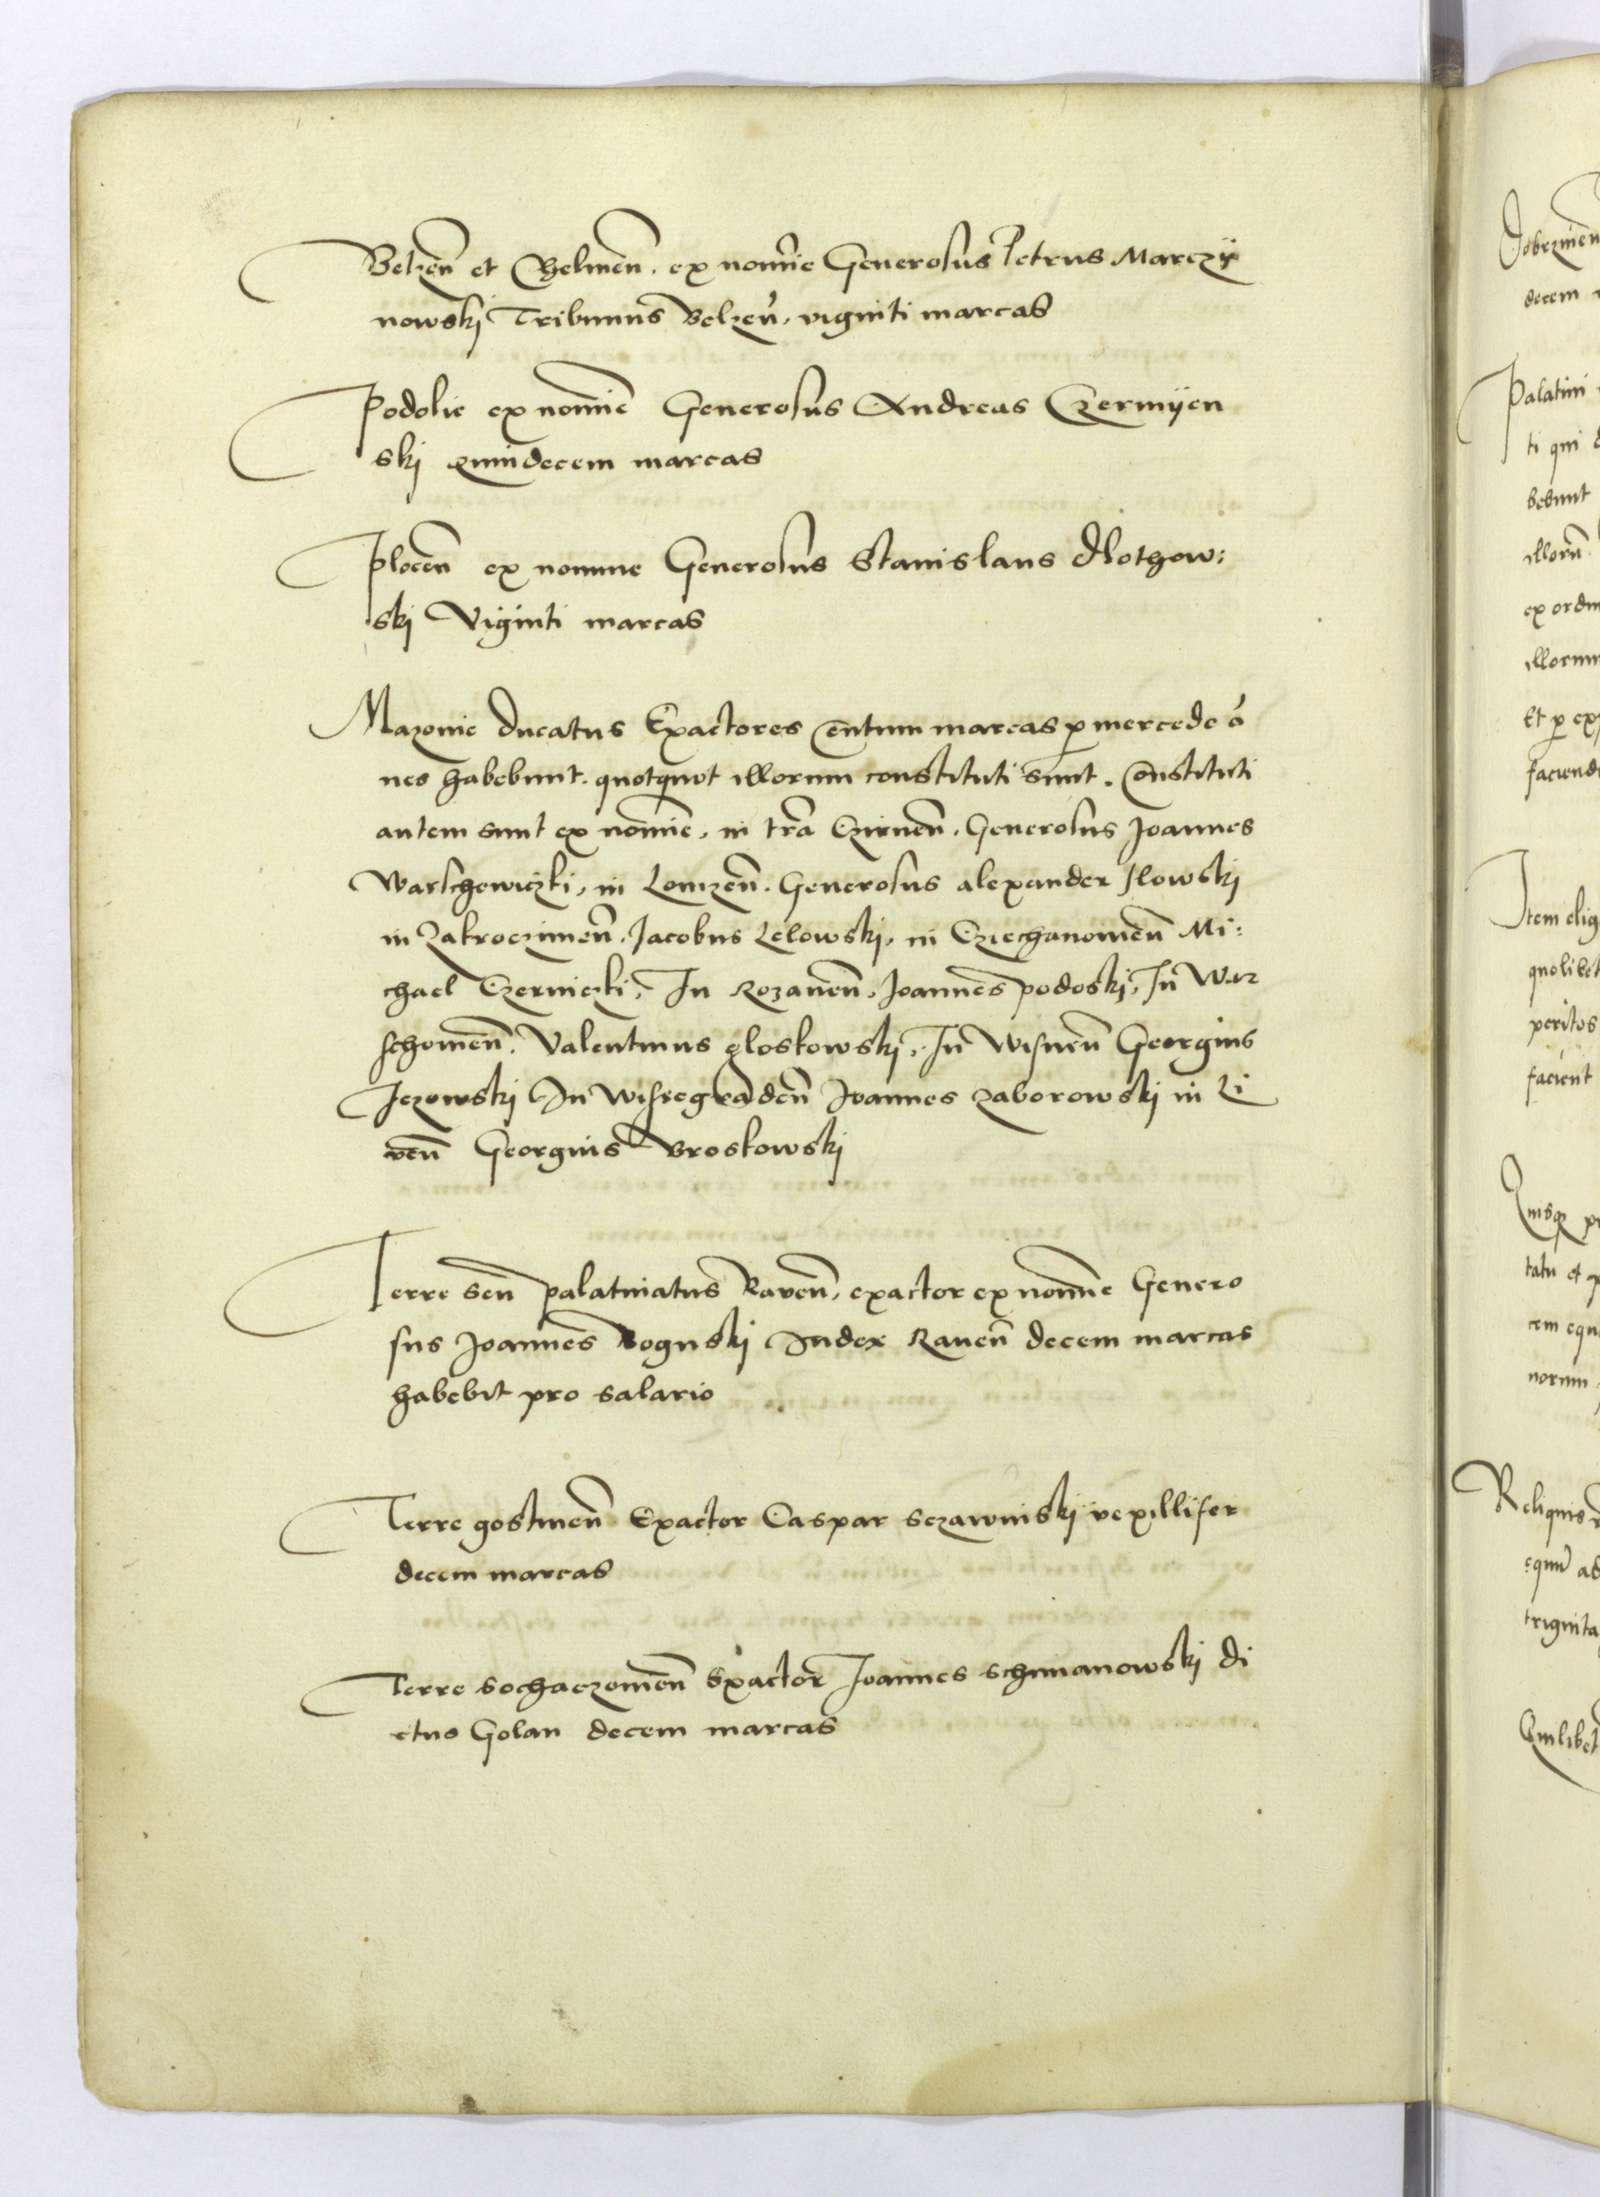 Belzen̄ et Chelmen̄. ex nom̄ie Generosus Petrus Marczÿ
nowskj Tribunus Belzen̄. viginti marcas
Podolie ex nomīe Generosus Andreas Czermÿen
skj quindecem marcas
Plocen̄ ex nomine Generosus Stanislaus dlothow:
skj Viginti marcas
Mazouie ducatus Exactores Centum marcas p mercede ō
nes habebunt. quotquot illorum constituti sunt. Constituti
autem sunt ex nomīe. in tr̄a Czirnen̄. Generosus Joannes
Warschewiczki, in Lomzen̄. Generosus alexander Ilowskj
in Zakroczimen̄. Jacobus Lelowskj, in Cziechanouien̄ Mi:
chael Czerniczki, In Rozanen̄. Joannes podoskj, In War
schouien̄. Valentinus gloskowskj, In Wisnen̄ Georgius
Jezewskj In Wisregraden̄ Joannes zaborowskj in Li
ven̄ Georgius Vroskowskj
Terre seu palatinatus Raven̄, exactor ex nomīe Genero
sus Joannes Boguskj Judex Rauen̄ decem marcas
habebit pro salario
Terre gostinen̄ Exactor Caspar sczawinskj vexillifer
decem marcas
Terre sochaczouien̄ Exactor Joannes schimanowskj di
ctus Golan decem marcas
decem
Palatini
ti qui
bebunt
illorū
illorum
Item elig
quolibet
peritos
facient
tatu et
norum
Reliquis
triginta
Quilibet